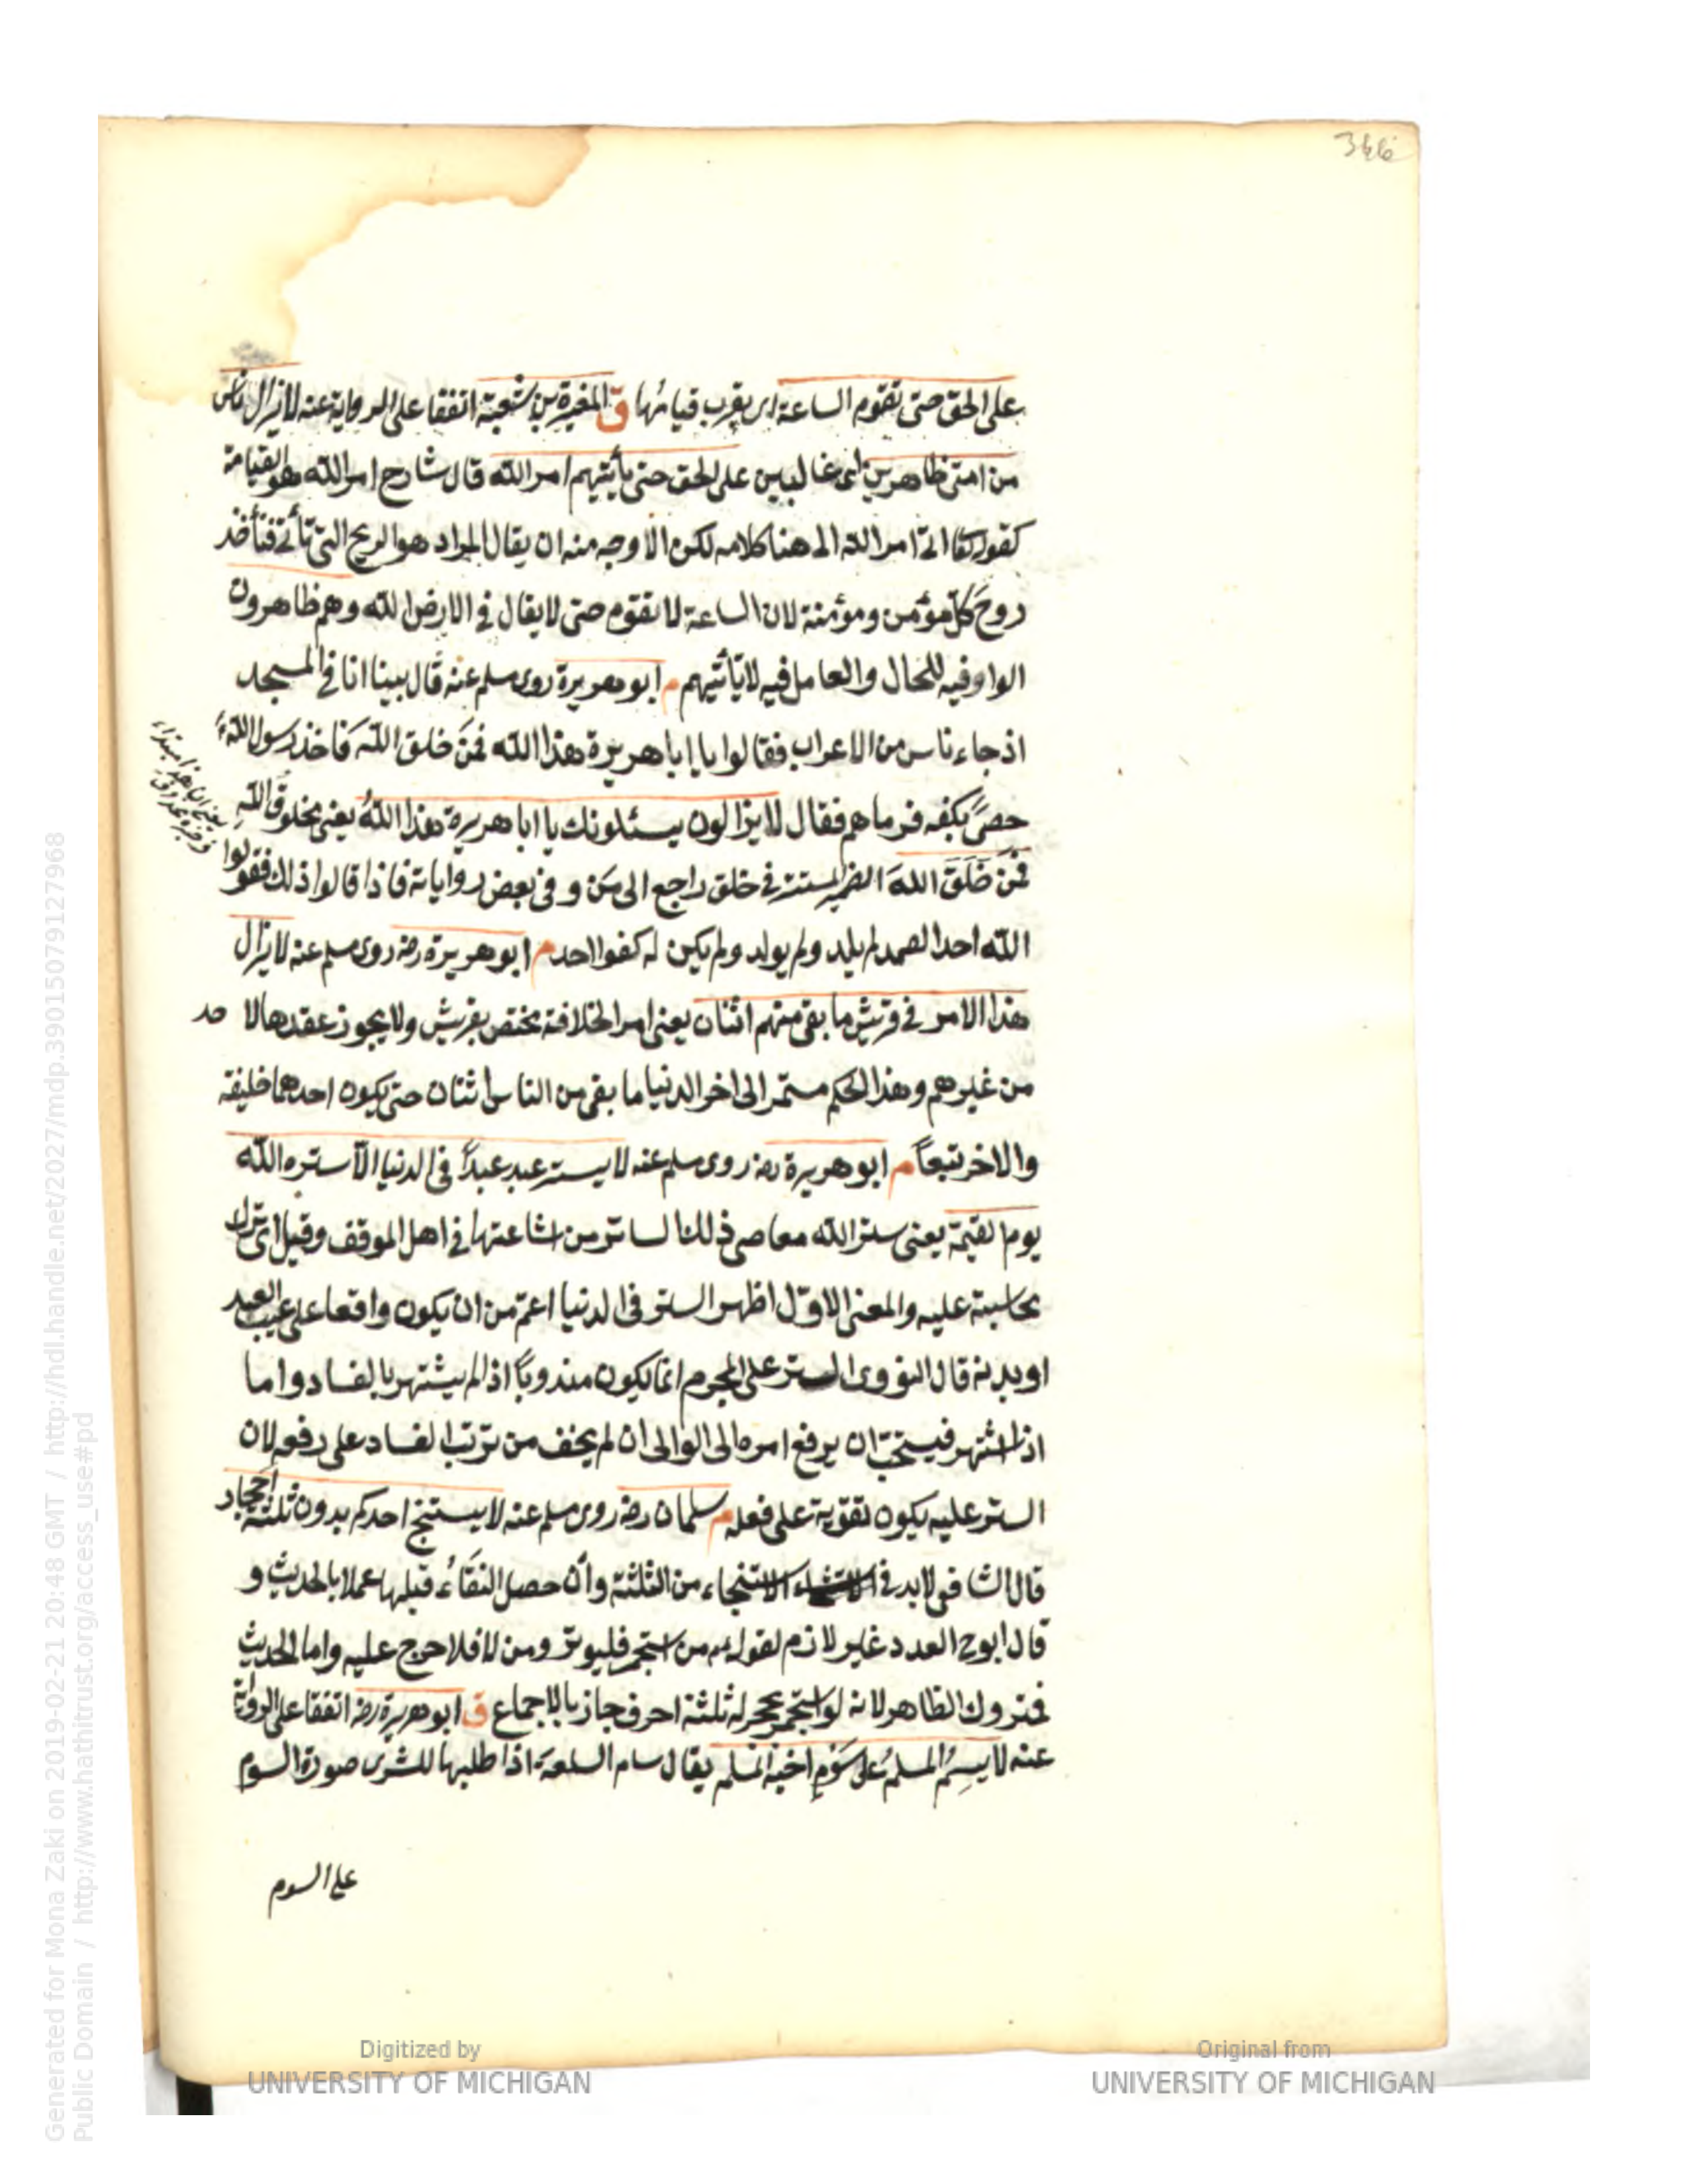 346
على الحق حتى تقوم الساعة اى يقرب قيامها ق المغيرة بن شعبة اتفقا على الرواية عنه لا يزال ناس
من امتى ظاهرين اى غالبين على الحق حتى يأتيهم امر الله قال شارح امر الله هو القيامة
كقوله تعا اتى امر الله الى هنا كلامه لكن الاوجه منه ان يقال المراد هو الريح التى تأتى فتأخذ
روح كل مؤمن ومؤمنة لان الساعة لا تقوم حتى لا يقال فى الارض الله وهم ظاهرون
الواو فيه للحال والعامل فيه لا يأتيهم م ابو هريرة روى مسلم عنه قال بينا انا فى المسجد
اذ جاء ناس من الاعراب فقالوا يا ابا هريرة هذا الله فمن خلق الله فاخذ رسول الله
حصى بكفه فرماهم فقال لا يزالون يسئلونك يا ابا هريرة هذا الله يعنى مخلوق الله
فمن خلق الله الضمير المستتر فى خلق راجع الى من و فى بعض رواياته فاذا قالوا ذلك فقولوا
الله احد الصمد لم يلد ولم يولد ولم يكن له كفوا احد م ابو هريرة رضه روى مسلم عنه لا يزال
هذا الامر فى قريش ما بقى منهم اثنان يعنى امر الخلافة يختص بقريش ولا يجوز عقدها لا حد
من غيرهم وهذا الحكم مستمر الى اخر الدنيا ما بقى من الناس اثنان حتى يكون احدهما خليفة
والاخر تبعاً م ابو هريرة رضه روى مسلم عنه لا يستر عبد عبداً فى الدنيا الا ستره الله
يوم القيمة يعنى ستر الله معاصى ذلك الساتر من اشاعتها فى اهل الموقف وقيل اى ترك
محاسبته عليه والمعنى الاول اظهر الستر فى الدنيا اعم من ان يكون واقعا على عيب العبد
او بدنه قال النووى الستر على المجرم انما يكون مندوباً اذا لم يشتهر بالفساد واما
اذا اشتهر فيستحب ان يرفع امره الى الوالى ان لم يخف من ترتب الفساد على رفعه لان
الستر عليه يكون تقوية على فعله م سلمان رضه روى مسلم عنه لا يستنج احدكم بدون ثلثة احجار
قال الشافعى لابد فى الاستنجاء من الثلثة وان حصل النقاء قبلها عملا بالحديث و
قال ابو ح العدد غير لازم لقوله عم من استجمر فليوتر ومن لا فلا حرج عليه واما الحديث
فمتروك الظاهر لانه لو استجمر بحجر له ثلثة احرف جاز بالاجماع ق ابو هريرة رضه اتفقا على الرواية
عنه لا يسم المسلم على سوم اخيه المسلم يقال سام السلعة اذا طلبها للشرى صورة السوم
على السوم
Digitized by
UNIVERSITY OF MICHIGAN
Original from
UNIVERSITY OF MICHIGAN
Generated for Mona Zaki on 2019-02-21 20:48 GMT / http://hdl.handle.net/2027/mdp.39015079127968
Public Domain / http://www.hathitrust.org/access_use#pd